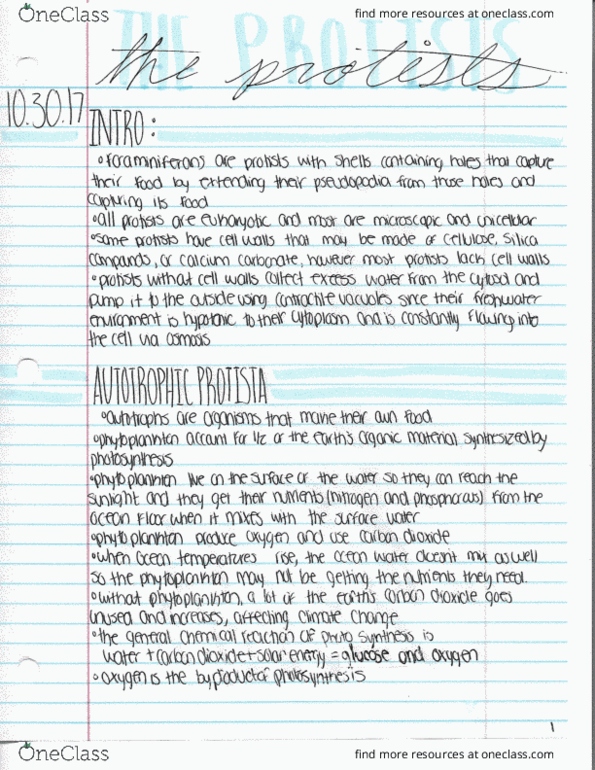 OneClass
find more resources at oneclass.com
THE PROTISTS
the protists
10.30.17
INTRO:
•foraminiferans are protists with shells containing holes that capture
their food by extending their pseudopodia from those holes and
capturing its food
•all protists are eukaryotic and most are microscopic and unicellular
•some protists have cell walls that may be made of cellulose, silica
compounds, or calcium carbonate, however most protists lack cell walls
•protists without cell walls collect excess water from the cytosol and
pump it to the outside using contractile vacuoles since their freshwater
environment is hypotonic to their cytoplasm and is constantly flowing into
the cell via osmosis
AUTOTROPHIC PROTISTA
•autotrophs are organisms that make their own food
•phytoplankton account for 1/2 of the earth's organic material synthesized by
photosynthesis
•phytoplankton live on the surface of the water so they can reach the
sunlight and they get their nutrients (nitrogen and phosphorous) from the
ocean floor when it mixes with the surface water
•phytoplankton produce oxygen and use carbon dioxide
•when ocean temperatures rise, the ocean water doesn't mix as well
so the phytoplankton may not be getting the nutrients they need.
•without phytoplankton, a lot of the earth's carbon dioxide goes
unused and increases, affecting climate change
•the general chemical reaction of photo synthesis is
water + carbon dioxide + solar energy = glucose and oxygen
•oxygen is the byproduct of photosynthesis
1
OneClass
find more resources at oneclass.com